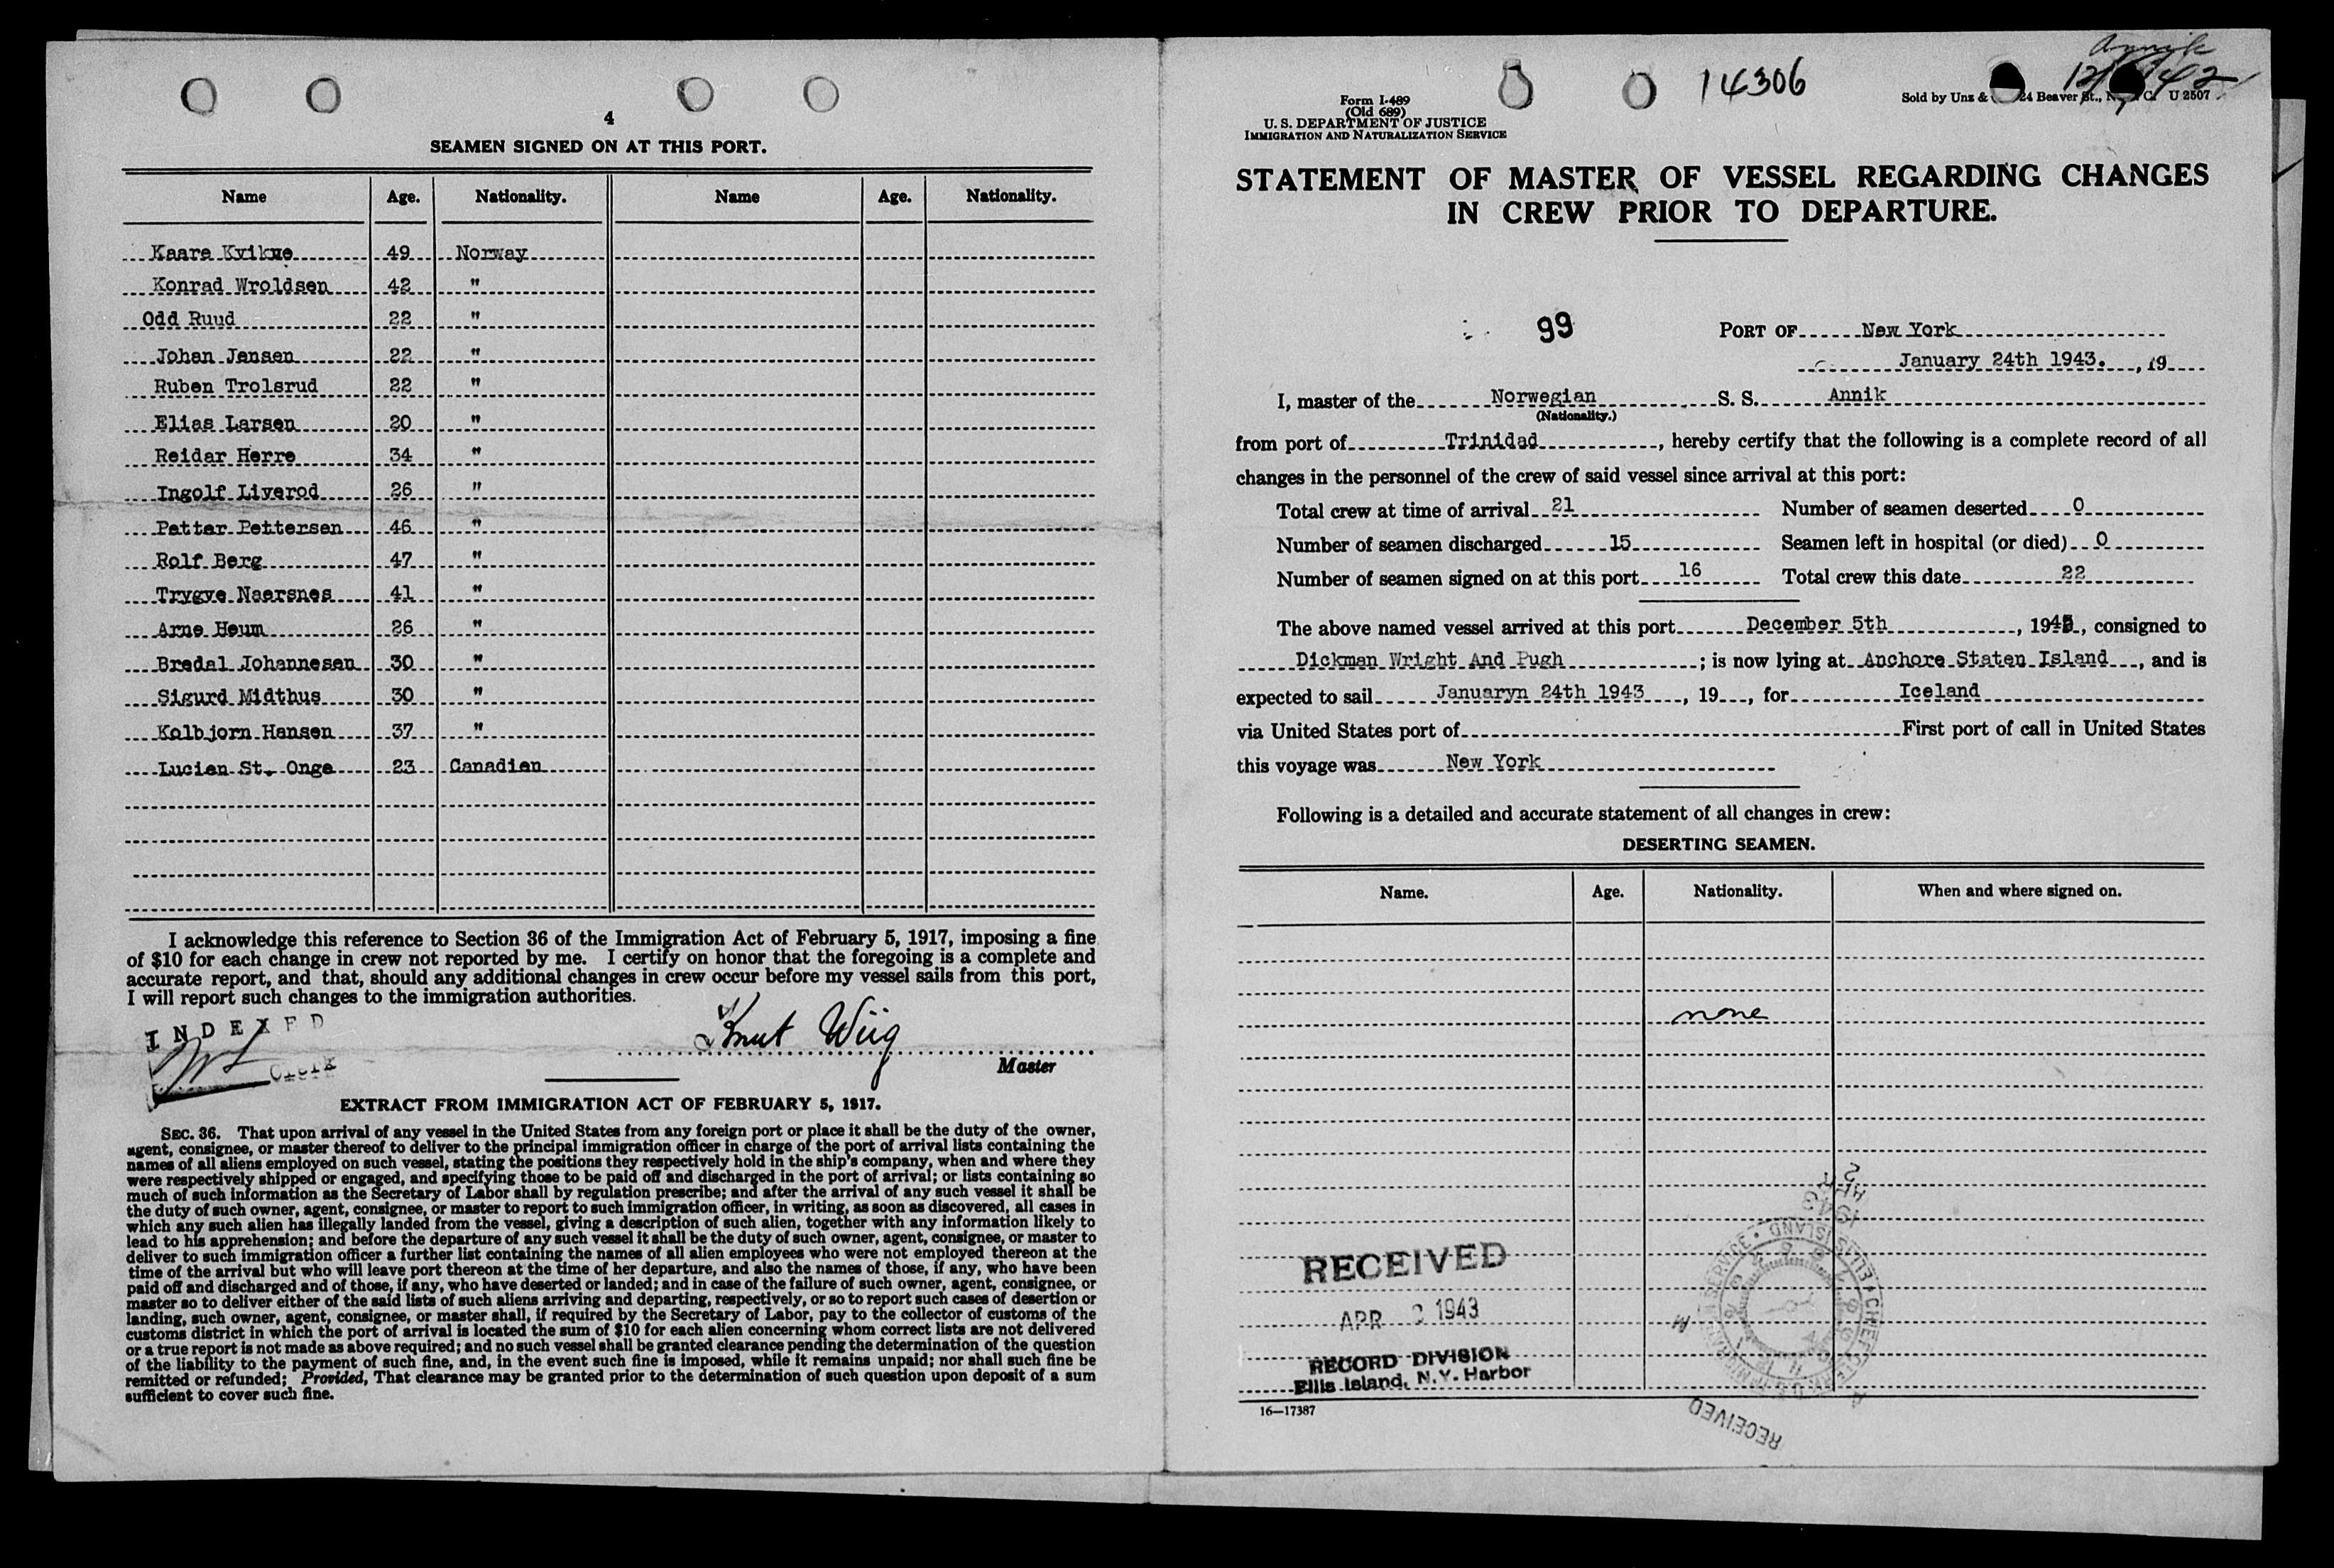 4
SEAMEN SIGNED ON AT THIS PORT.
Name Age. Nationality. Name Age. Nationality.
Kaare Kvikne 49 Norway
Konrad Wroldsen 42 "
Odd Ruud 22 "
Johan Jensen 22 "
Ruben Trolsrud 22 "
Elias Larsen 20 "
Reidar Herre 34 "
Ingolf Liverod 26 "
Petter Pettersen 46 "
Rolf Berg 47 "
Trygve Naersnes 41 "
Arne Heum 26 "
Bredal Johannesen 30 "
Sigurd Midthus 30 "
Kolbjorn Hansen 37 "
Lucien St. Onge 23 Canadien
I acknowledge this reference to Section 36 of the Immigration Act of February 5, 1917, imposing a fine
of $10 for each change in crew not reported by me. I certify on honor that the foregoing is a complete and
accurate report, and that, should any additional changes in crew occur before my vessel sails from this port,
I will report such changes to the immigration authorities.
INDEXED
Clerk
Knut Wiig
Master
EXTRACT FROM IMMIGRATION ACT OF FEBRUARY 5, 1917.
SEC. 36. That upon arrival of any vessel in the United States from any foreign port or place it shall be the duty of the owner,
agent, consignee, or master thereof to deliver to the principal immigration officer in charge of the port of arrival lists containing the
names of all aliens employed on such vessel, stating the positions they respectively hold in the ship's company, when and where they
were respectively shipped or engaged, and specifying those to be paid off and discharged in the port of arrival; or lists containing so
much of such information as the Secretary of Labor shall by regulation prescribe; and after the arrival of any such vessel it shall be
the duty of such owner, agent, consignee, or master to report to such immigration officer, in writing, as soon as discovered, all cases in
which any such alien has illegally landed from the vessel, giving a description of such alien, together with any information likely to
lead to his apprehension; and before the departure of any such vessel it shall be the duty of such owner, agent, consignee, or master to
deliver to such immigration officer a further list containing the names of all alien employees who were not employed thereon at the
time of the arrival but who will leave port thereon at the time of her departure, and also the names of those, if any, who have been
paid off and discharged and of those, if any, who have deserted or landed; and in case of the failure of such owner, agent, consignee, or
master so to deliver either of the said lists of such aliens arriving and departing, respectively, or so to report such cases of desertion or
landing, such owner, agent, consignee, or master shall, if required by the Secretary of Labor, pay to the collector of customs of the
customs district in which the port of arrival is located the sum of $10 for each alien concerning whom correct lists are not delivered
or a true report is not made as above required; and no such vessel shall be granted clearance pending the determination of the question
of the liability to the payment of such fine, and, in the event such fine is imposed, while it remains unpaid; nor shall such fine be
remitted or refunded; Provided, That clearance may be granted prior to the determination of such question upon deposit of a sum
sufficient to cover such fine.
Annik
14306
Form I-489
(Old 689)
U. S. DEPARTMENT OF JUSTICE
IMMIGRATION AND NATURALIZATION SERVICE
Sold by Unz & 24 Beaver St., N. C. U 2507
STATEMENT OF MASTER OF VESSEL REGARDING CHANGES
IN CREW PRIOR TO DEPARTURE.
99
PORT OF New York
January 24th 1943. , 19
I, master of the Norwegian S. S. Annik
(Nationality.)
from port of Trinidad, hereby certify that the following is a complete record of all
changes in the personnel of the crew of said vessel since arrival at this port:
Total crew at time of arrival 21 Number of seamen deserted 0
Number of seamen discharged 15 Seamen left in hospital (or died) 0
Number of seamen signed on at this port 16 Total crew this date 22
The above named vessel arrived at this port December 5th, 1942, consigned to
Dickman Wright And Pugh; is now lying at Anchore Staten Island, and is
expected to sail Januaryn 24th 1943, 19, for Iceland
via United States port of First port of call in United States
this voyage was New York
Following is a detailed and accurate statement of all changes in crew:
DESERTING SEAMEN.
Name. Age. Nationality. When and where signed on.
none
RECEIVED
APR 2 1943
RECORD DIVISION
Ellis Island, N.Y. Harbor
1943
APR
2
ELLIS ISLAND
RECEIVED
16—17387